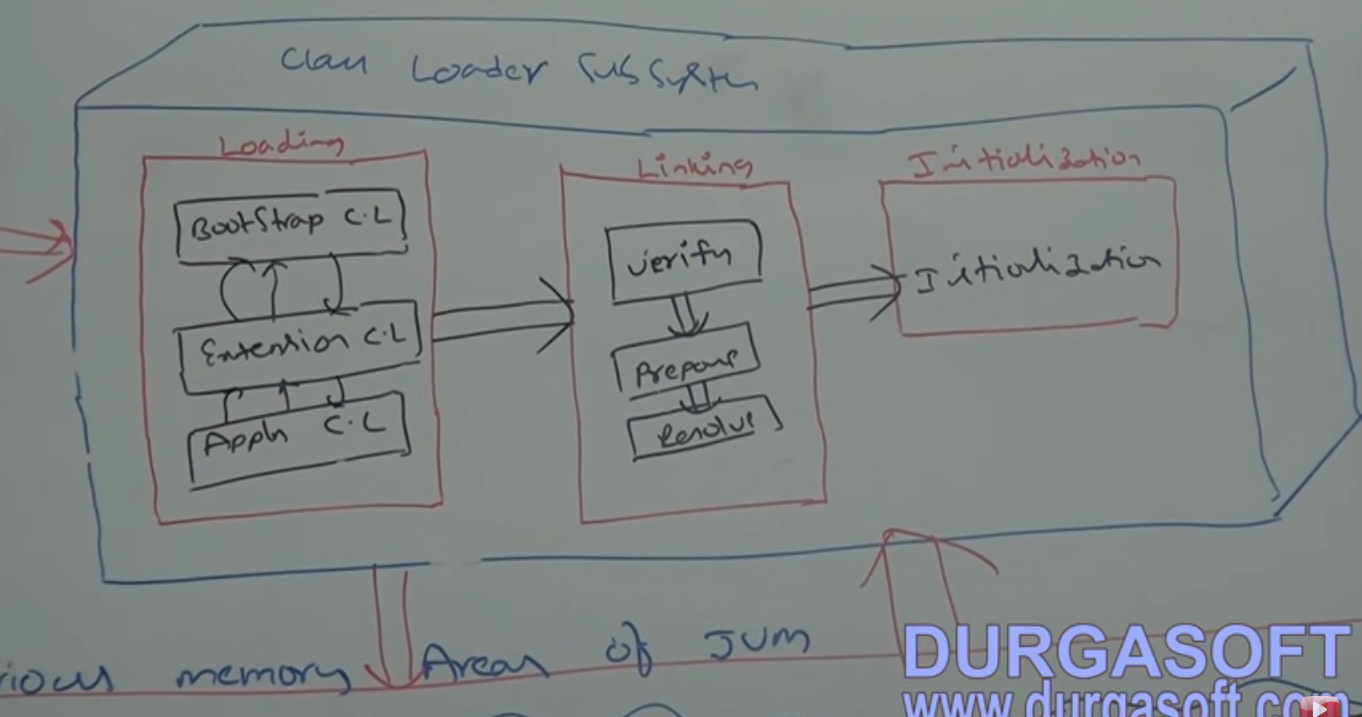 Class Loader SubSystem
Loading
BootStrap C.L
Extension C.L
Appln C.L
Linking
Verify
Prepare
Resolve
Initialization
Initialization
rious memory Areas of JVM
DURGASOFT
www.durgasoft.com